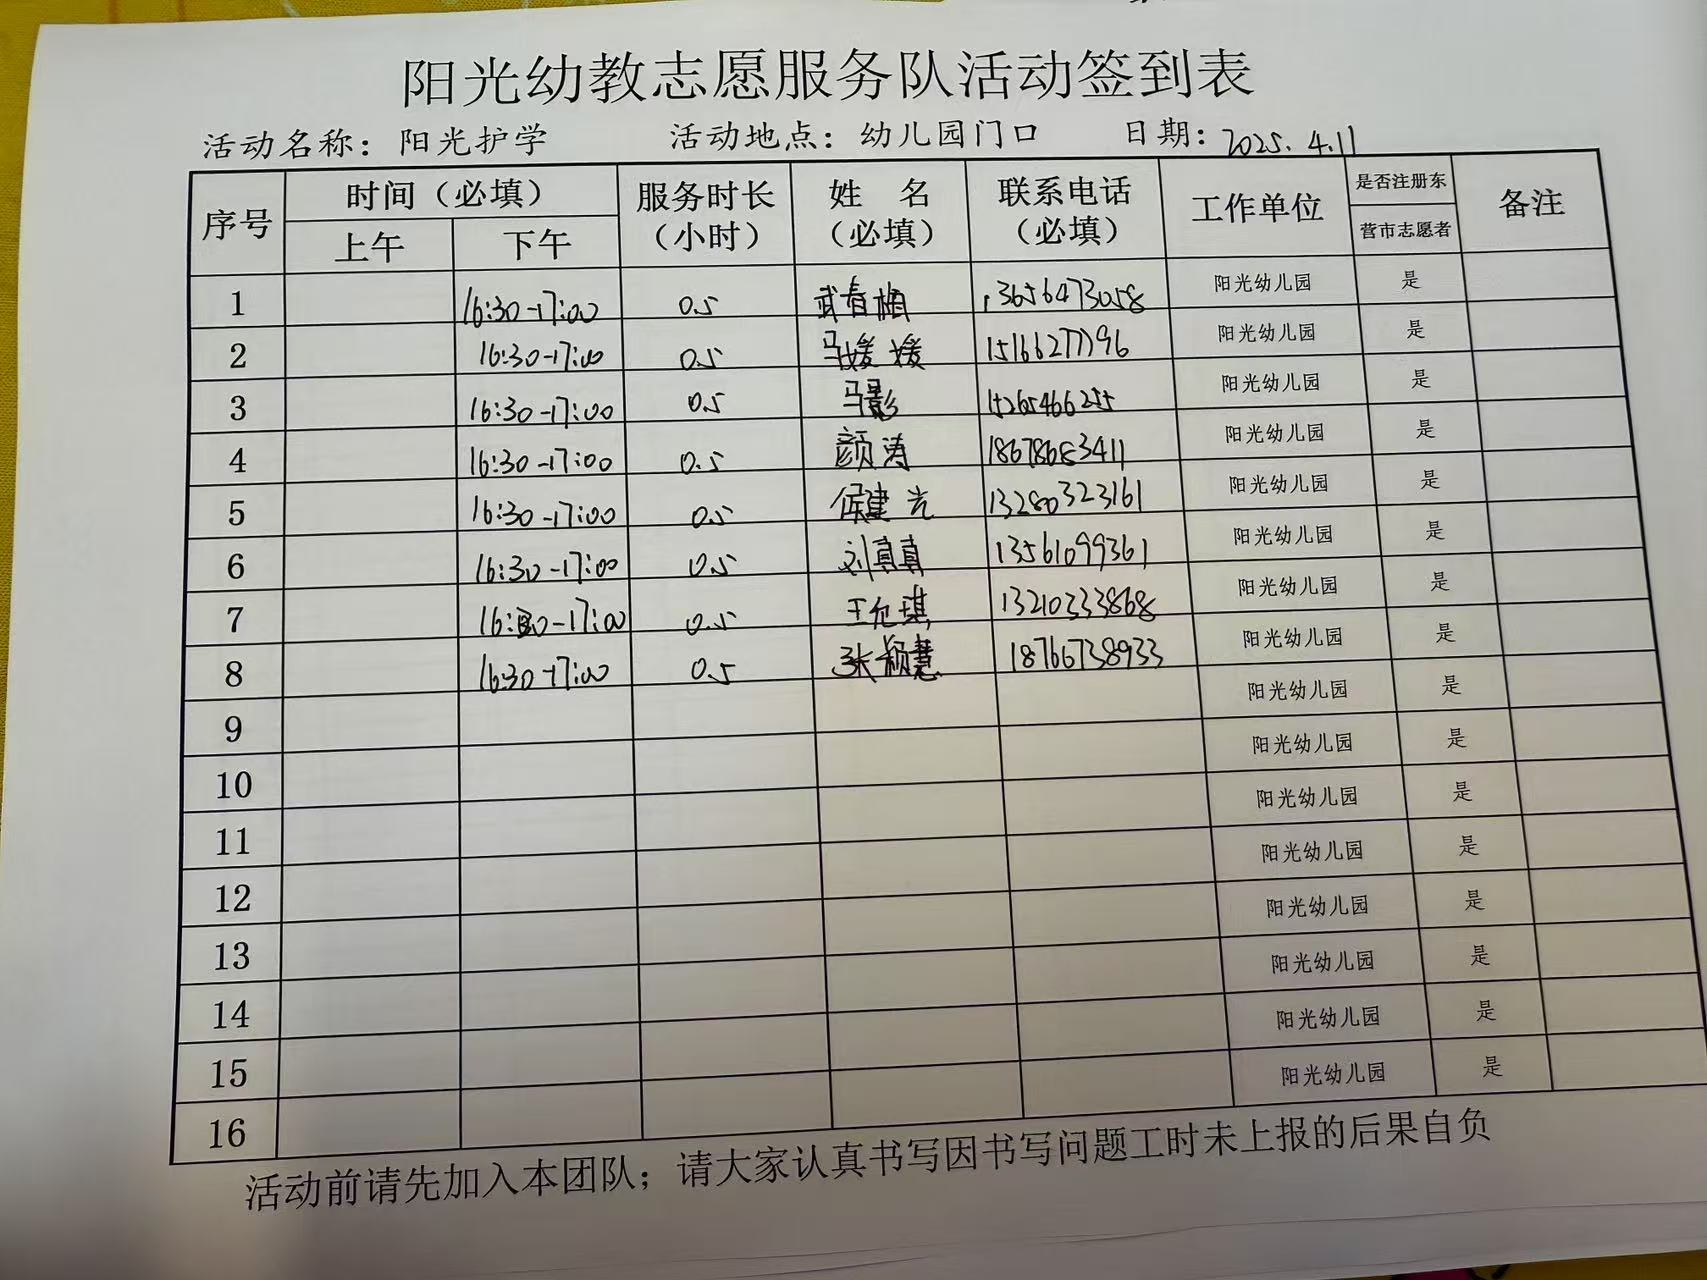 阳光幼教志愿服务队活动签到表
活动名称：阳光护学 活动地点：幼儿园门口 日期：2025.4.11
序号 时间（必填） 上午 下午 服务时长（小时） 姓 名（必填） 联系电话（必填） 工作单位 是否注册东营市志愿者 备注
1 16:30-17:00 0.5 武春梅 13656473058 阳光幼儿园 是
2 16:30-17:00 0.5 马媛媛 15166277796 阳光幼儿园 是
3 16:30-17:00 0.5 马影 15265466255 阳光幼儿园 是
4 16:30-17:00 0.5 颜涛 18678683411 阳光幼儿园 是
5 16:30-17:00 0.5 侯建光 13280323161 阳光幼儿园 是
6 16:30-17:00 0.5 刘真真 13561099361 阳光幼儿园 是
7 16:30-17:00 0.5 王允琪 13210333868 阳光幼儿园 是
8 16:30-17:00 0.5 张颖慧 18766738933 阳光幼儿园 是
9 阳光幼儿园 是
10 阳光幼儿园 是
11 阳光幼儿园 是
12 阳光幼儿园 是
13 阳光幼儿园 是
14 阳光幼儿园 是
15 阳光幼儿园 是
16 阳光幼儿园 是
活动前请先加入本团队；请大家认真书写因书写问题工时未上报的后果自负